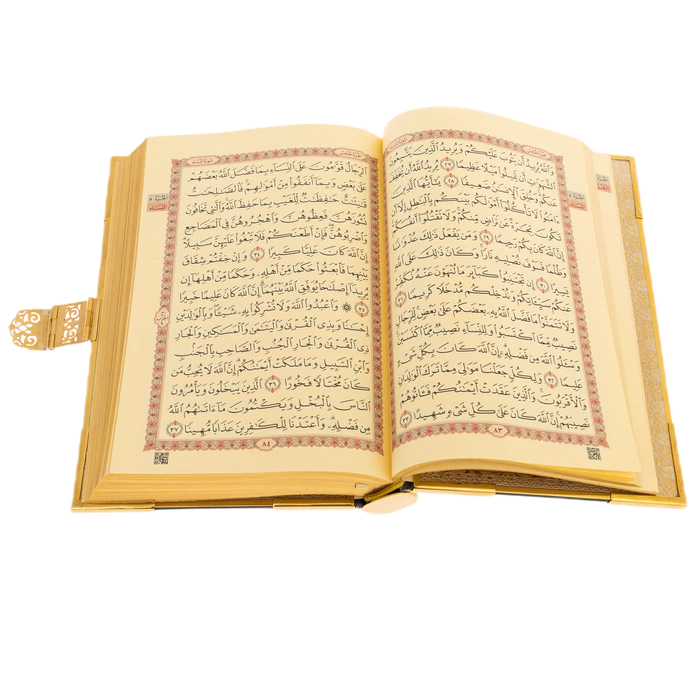 وَٱللَّهُ يُرِيدُ أَن يَتُوبَ عَلَيْكُمْ وَيُرِيدُ ٱلَّذِينَ يَتَّبِعُونَ
ٱلشَّهَوَٰتِ أَن تَمِيلُوا۟ مَيْلًا عَظِيمًا ٢٧ يُرِيدُ ٱللَّهُ أَن يُخَفِّفَ
عَنكُمْ وَخُلِقَ ٱلْإِنسَٰنُ ضَعِيفًا ٢٨ يَٰٓأَيُّهَا ٱلَّذِينَ
ءَامَنُوا۟ لَا تَأْكُلُوٓا۟ أَمْوَٰلَكُم بَيْنَكُم بِٱلْبَٰطِلِ إِلَّآ أَن
تَكُونَ تِجَٰرَةً عَن تَرَاضٍ مِّنكُمْ وَلَا تَقْتُلُوٓا۟ أَنفُسَكُمْ
إِنَّ ٱللَّهَ كَانَ بِكُمْ رَحِيمًا ٢٩ وَمَن يَفْعَلْ ذَٰلِكَ عُدْوَٰنًا
وَظُلْمًا فَسَوْفَ نُصْلِيهِ نَارًا وَكَانَ ذَٰلِكَ عَلَى ٱللَّهِ
يَسِيرًا ٣٠ إِن تَجْتَنِبُوا۟ كَبَآئِرَ مَا تُنْهَوْنَ عَنْهُ نُكَفِّرْ
عَنكُمْ سَيِّـَٔاتِكُمْ وَنُدْخِلْكُم مُّدْخَلًا كَرِيمًا ٣١
وَلَا تَتَمَنَّوْا۟ مَا فَضَّلَ ٱللَّهُ بِهِۦ بَعْضَكُمْ عَلَىٰ بَعْضٍ لِّلرِّجَالِ
نَصِيبٌ مِّمَّا ٱكْتَسَبُوا۟ وَلِلنِّسَآءِ نَصِيبٌ مِّمَّا ٱكْتَسَبْنَ
وَسْـَٔلُوا۟ ٱللَّهَ مِن فَضْلِهِۦٓ إِنَّ ٱللَّهَ كَانَ بِكُلِّ شَىْءٍ
عَلِيمًا ٣٢ وَلِكُلٍّ جَعَلْنَا مَوَٰلِىَ مِمَّا تَرَكَ ٱلْوَٰلِدَانِ
وَٱلْأَقْرَبُونَ وَٱلَّذِينَ عَقَدَتْ أَيْمَٰنُكُمْ فَـَٔاتُوهُمْ
نَصِيبَهُمْ إِنَّ ٱللَّهَ كَانَ عَلَىٰ كُلِّ شَىْءٍ شَهِيدًا ٣٣
٨٣
ٱلرِّجَالُ قَوَّٰمُونَ عَلَى ٱلنِّسَآءِ بِمَا فَضَّلَ ٱللَّهُ بَعْضَهُمْ
عَلَىٰ بَعْضٍ وَبِمَآ أَنفَقُوا۟ مِنْ أَمْوَٰلِهِمْ فَٱلصَّٰلِحَٰتُ
قَٰنِتَٰتٌ حَٰفِظَٰتٌ لِّلْغَيْبِ بِمَا حَفِظَ ٱللَّهُ وَٱلَّٰتِى تَخَافُونَ
نُشُوزَهُنَّ فَعِظُوهُنَّ وَٱهْجُرُوهُنَّ فِى ٱلْمَضَاجِعِ
وَٱضْرِبُوهُنَّ فَإِنْ أَطَعْنَكُمْ فَلَا تَبْغُوا۟ عَلَيْهِنَّ سَبِيلًا
إِنَّ ٱللَّهَ كَانَ عَلِيًّا كَبِيرًا ٣٤ وَإِنْ خِفْتُمْ شِقَاقَ
بَيْنِهِمَا فَٱبْعَثُوا۟ حَكَمًا مِّنْ أَهْلِهِۦ وَحَكَمًا مِّنْ أَهْلِهَآ إِن
يُرِيدَآ إِصْلَٰحًا يُوَفِّقِ ٱللَّهُ بَيْنَهُمَآ إِنَّ ٱللَّهَ كَانَ عَلِيمًا خَبِيرًا
٣٥ ۞ وَٱعْبُدُوا۟ ٱللَّهَ وَلَا تُشْرِكُوا۟ بِهِۦ شَيْـًٔا وَبِٱلْوَٰلِدَيْنِ
إِحْسَٰنًا وَبِذِى ٱلْقُرْبَىٰ وَٱلْيَتَٰمَىٰ وَٱلْمَسَٰكِينِ وَٱلْجَارِ
ذِى ٱلْقُرْبَىٰ وَٱلْجَارِ ٱلْجُنُبِ وَٱلصَّاحِبِ بِٱلْجَنۢبِ
وَٱبْنِ ٱلسَّبِيلِ وَمَا مَلَكَتْ أَيْمَٰنُكُمْ إِنَّ ٱللَّهَ لَا يُحِبُّ مَن
كَانَ مُخْتَالًا فَخُورًا ٣٦ ٱلَّذِينَ يَبْخَلُونَ وَيَأْمُرُونَ
ٱلنَّاسَ بِٱلْبُخْلِ وَيَكْتُمُونَ مَآ ءَاتَىٰهُمُ ٱللَّهُ
مِن فَضْلِهِۦ وَأَعْتَدْنَا لِلْكَٰفِرِينَ عَذَابًا مُّهِينًا ٣٧
٨٤